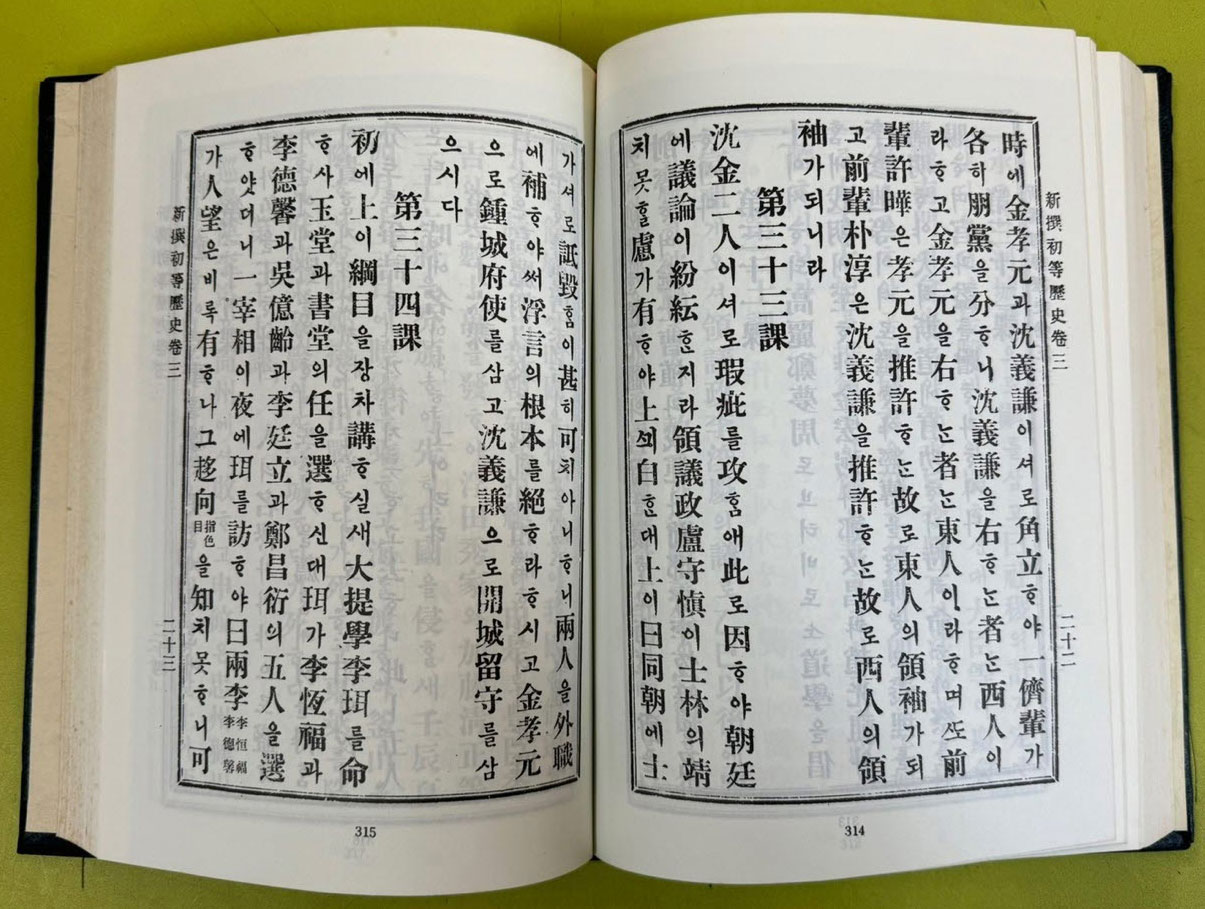 新撰初等歷史卷三 二十二
時에金孝元과沈義謙이셔로角立ᄒᆞ야一儕輩가
各하朋黨을分ᄒᆞ니沈義謙을右ᄒᆞᄂᆞᆫ者ᄂᆞᆫ西人이
라ᄒᆞ고金孝元을右ᄒᆞᄂᆞᆫ者ᄂᆞᆫ東人이라ᄒᆞ며ᄯᅩ前
輩許曄은孝元을推許ᄒᆞᄂᆞᆫ故로東人의領袖가되
고前輩朴淳은沈義謙을推許ᄒᆞᄂᆞᆫ故로西人의領
袖가되니라
第三十三課
沈金二人이셔로瑕疵를攻ᄒᆞᆷ애此로因ᄒᆞ야朝廷
에議論이紛紜ᄒᆞᆫ지라領議政盧守愼이士林의靖
치못ᄒᆞᆯ慮가有ᄒᆞ야上ᄭᅴ白ᄒᆞᆫ대上이曰同朝에士
314
가셔로詆毁ᄒᆞᆷ이甚히可치아니ᄒᆞ니兩人을外職
에補ᄒᆞ야써浮言의根本를絕ᄒᆞ라ᄒᆞ시고金孝元
으로鍾城府使를삼고沈義謙으로開城留守를삼
으시다
第三十四課
初에上이綱目을장차講ᄒᆞ실새大提學李珥를命
ᄒᆞ사玉堂과書堂의任을選ᄒᆞ신대珥가李恆福과
李德馨과吳億齡과李廷立과鄭昌衍의五人을選
ᄒᆞ얏더니一宰相이夜에珥를訪ᄒᆞ야曰兩李李恒福李德馨
가人望은비록有ᄒᆞ나그趍向指色目을知치못ᄒᆞ니可
新撰初等歷史卷三 二十三
315